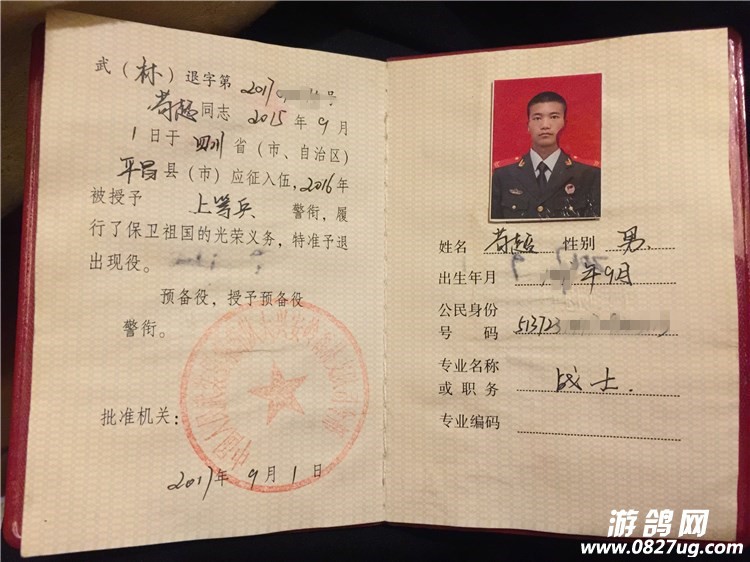 武（林）退字第2017号
苟超同志 2015年9月
1日于 四川 省（市、自治区）
平昌县（市）应征入伍，2016年
被授予 上等兵 警衔，履
行了保卫祖国的光荣义务，特准予退
出现役。
预备役，授予预备役
警衔。
批准机关：
2017年9月1日
姓名 苟超 性别 男
出生年月 年9月
公民身份
号 码 513723
专业名称
或 职 务 战士.
专业编码
游鸽网
www.0827ug.com